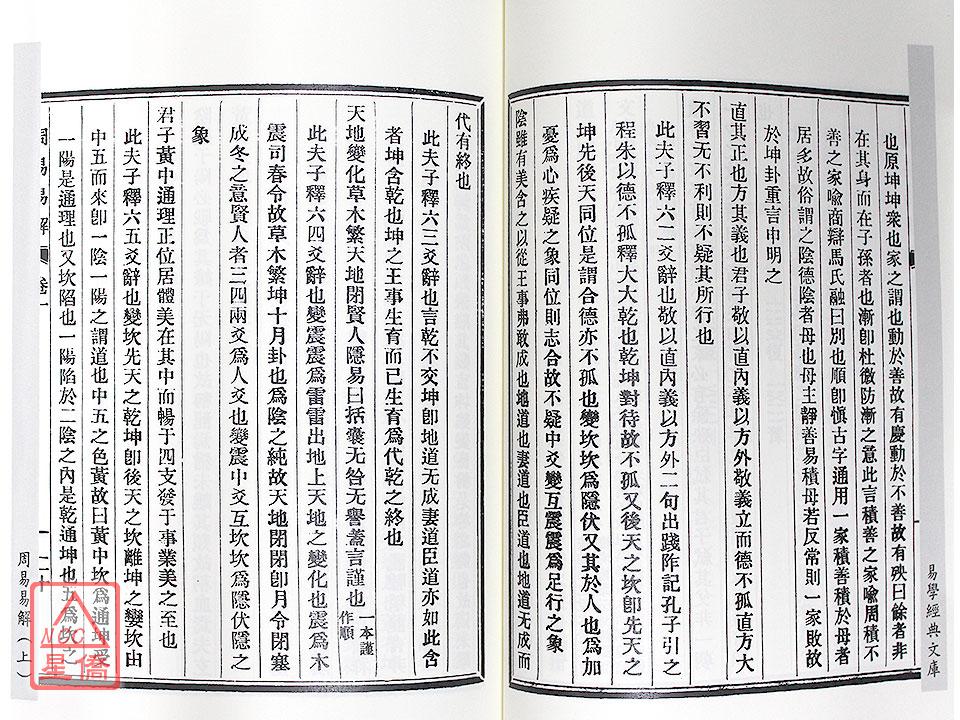 易學經典文庫
也原坤坤衆也家之謂也動於善故有慶動於不善故有殃曰餘者非
在其身而在子孫者也漸卽杜微防漸之意此言積善之家喩周積不
善之家喩商辯馬氏融曰別也順卽愼古字通用一家積善積於母者
居多故俗謂之陰德陰者母也母主靜善易積母若反常則一家敗故
於坤卦重言申明之
直其正也方其義也君子敬以直內義以方外敬義立而德不孤直方大
不習无不利則不疑其所行也
此夫子釋六二爻辭也敬以直內義以方外二句出踐阼記孔子引之
程朱以德不孤釋大大乾也乾坤對待故不孤又後天之坎卽先天之
坤先後天同位是謂合德亦不孤也變坎坎爲隱伏又其於人也爲加
憂爲心疾疑之象同位則志合故不疑中爻變互震震爲足行之象
陰雖有美含之以從王事弗敢成也地道也妻道也臣道也地道无成而
代有終也
此夫子釋六三爻辭也言乾不交坤卽地道无成妻道臣道亦如此含
者坤含乾也坤之王事生育而已生育爲代乾之終也
天地變化草木繁天地閉賢人隱易曰括囊无咎无譽蓋言謹也一本謹作順
此夫子釋六四爻辭也變震震爲雷雷出地上天地之變化也震爲木
震司春令故草木繁坤十月卦也爲陰之純故天地閉閉卽月令閉塞
成冬之意賢人者三四兩爻爲人爻也變震中爻互坎坎爲隱伏隱之
象
君子黃中通理正位居體美在其中而暢于四支發于事業美之至也
此夫子釋六五爻辭也變坎先天之乾坤卽後天之坎離坤之變坎由
中五而來卽一陰一陽之謂道也中五之色黃故曰黃中坎爲通坤受
一陽是通理也又坎陷也一陽陷於二陰之內是乾通坤也五爲坎之
周易易解 卷一
周易易解(上)
NCC
星僑